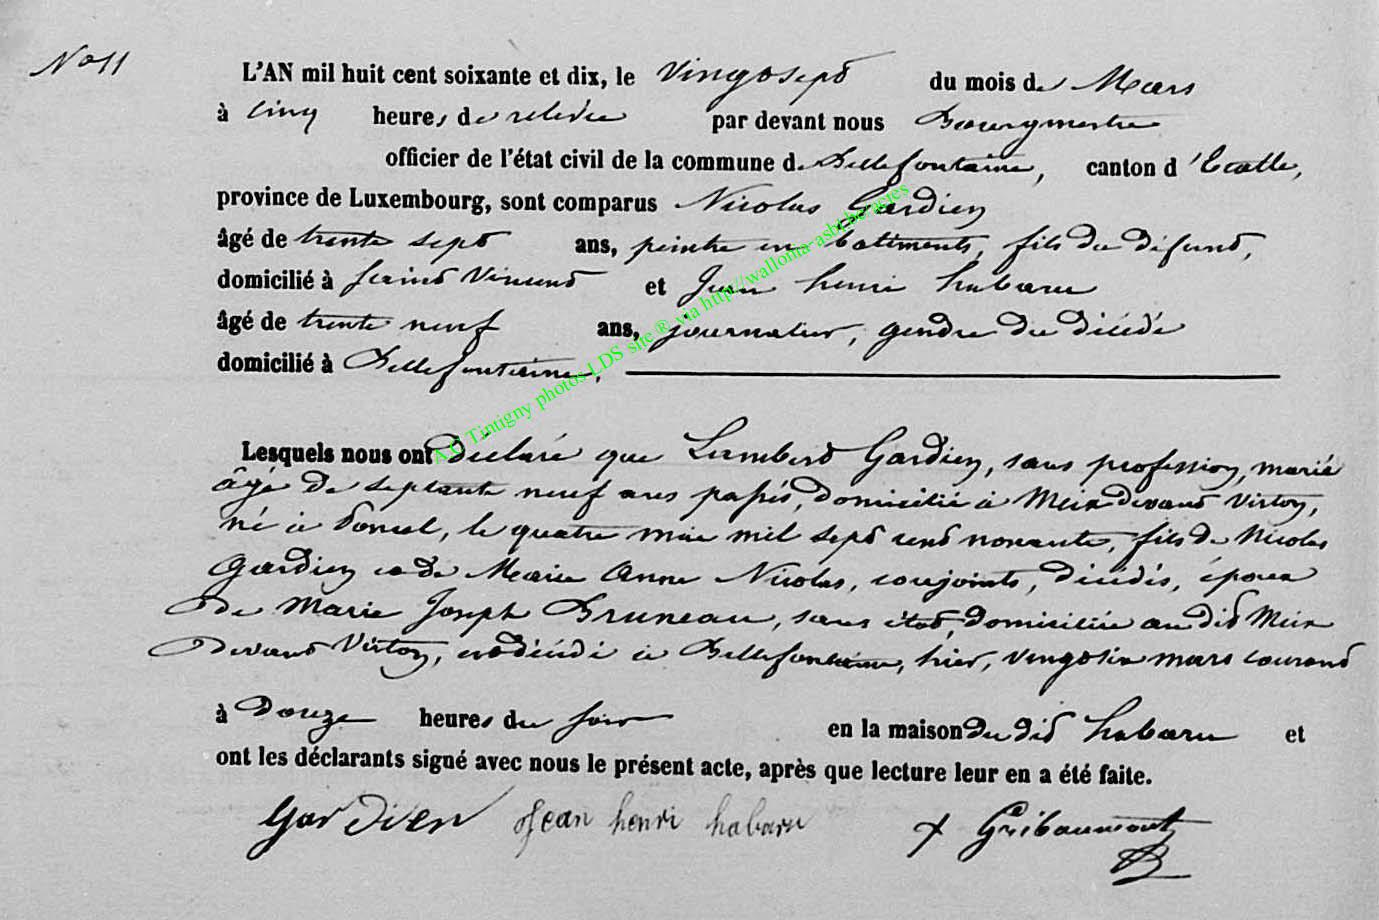 No 11
L'AN mil huit cent soixante et dix, le vingt sept du mois de Mars
à cinq heures de relevée par devant nous Bourgmestre
officier de l'état civil de la commune de Bellefontaine, canton d'Etalle,
province de Luxembourg, sont comparus Nicolas Gardien
âgé de trente sept ans, peintre en batiments, fils du défunt,
domicilié à Saint Vincent et Jean henri habaru
âgé de trente neuf ans, journalier, gendre du décédé
domicilié à Bellefontaine,
A.C Tintigny photos LDS site ® via http://wallonia-asbl.be/actes
Lesquels nous ont déclaré que Lambert Gardien, sans profession, marié
âgé de septante neuf ans passés, domicilié à Meix devant Virton,
né à le quatre mai mil sept cent nonante, fils de Nicolas
Gardien et de Marie Anne Nicolas, conjoints, décédés, époux
de Marie Joseph Bruneau, sans état, domiciliée au dit Meix
devant Virton, est décédé à Bellefontaine, hier, vingt six mars courant
à Douze heures du soir en la maison du dit habaru et
ont les déclarants signé avec nous le présent acte, après que lecture leur en a été faite.
Gardien Jean henri habaru Gribaumont